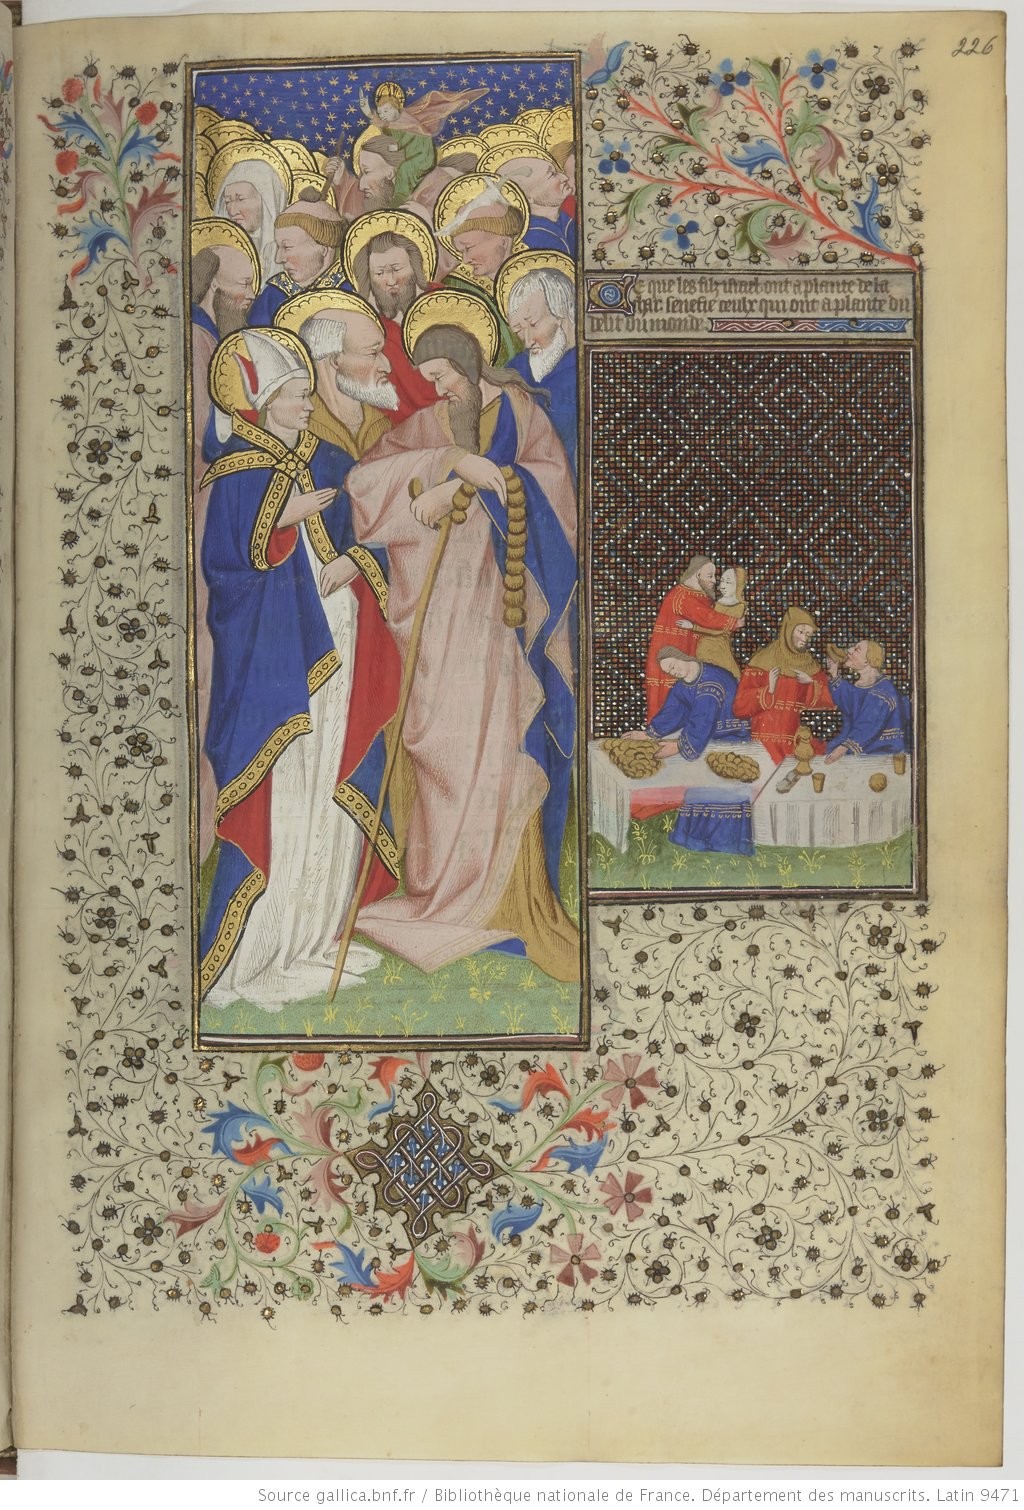 226
Ce que les filz israel ont a plante de la
char senefie ceulx qui ont a plante du
delit du monde
Source gallica.bnf.fr / Bibliothèque nationale de France. Département des manuscrits. Latin 9471